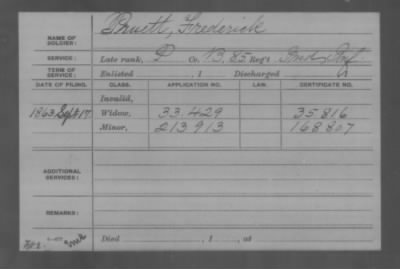 NAME OF SOLDIER: Pruett, Frederick
SERVICE: Late rank, P Co. B, 85 Reg't Ind Inf
TERM OF SERVICE: Enlisted , 1 Discharged , 1
DATE OF FILING. CLASS. APPLICATION NO. LAW. CERTIFICATE NO.
Invalid,
1863 Sept 17 Widow, 33.429 35816
Minor, 213.913 168807
ADDITIONAL SERVICES:
REMARKS:
Died , 1 , at